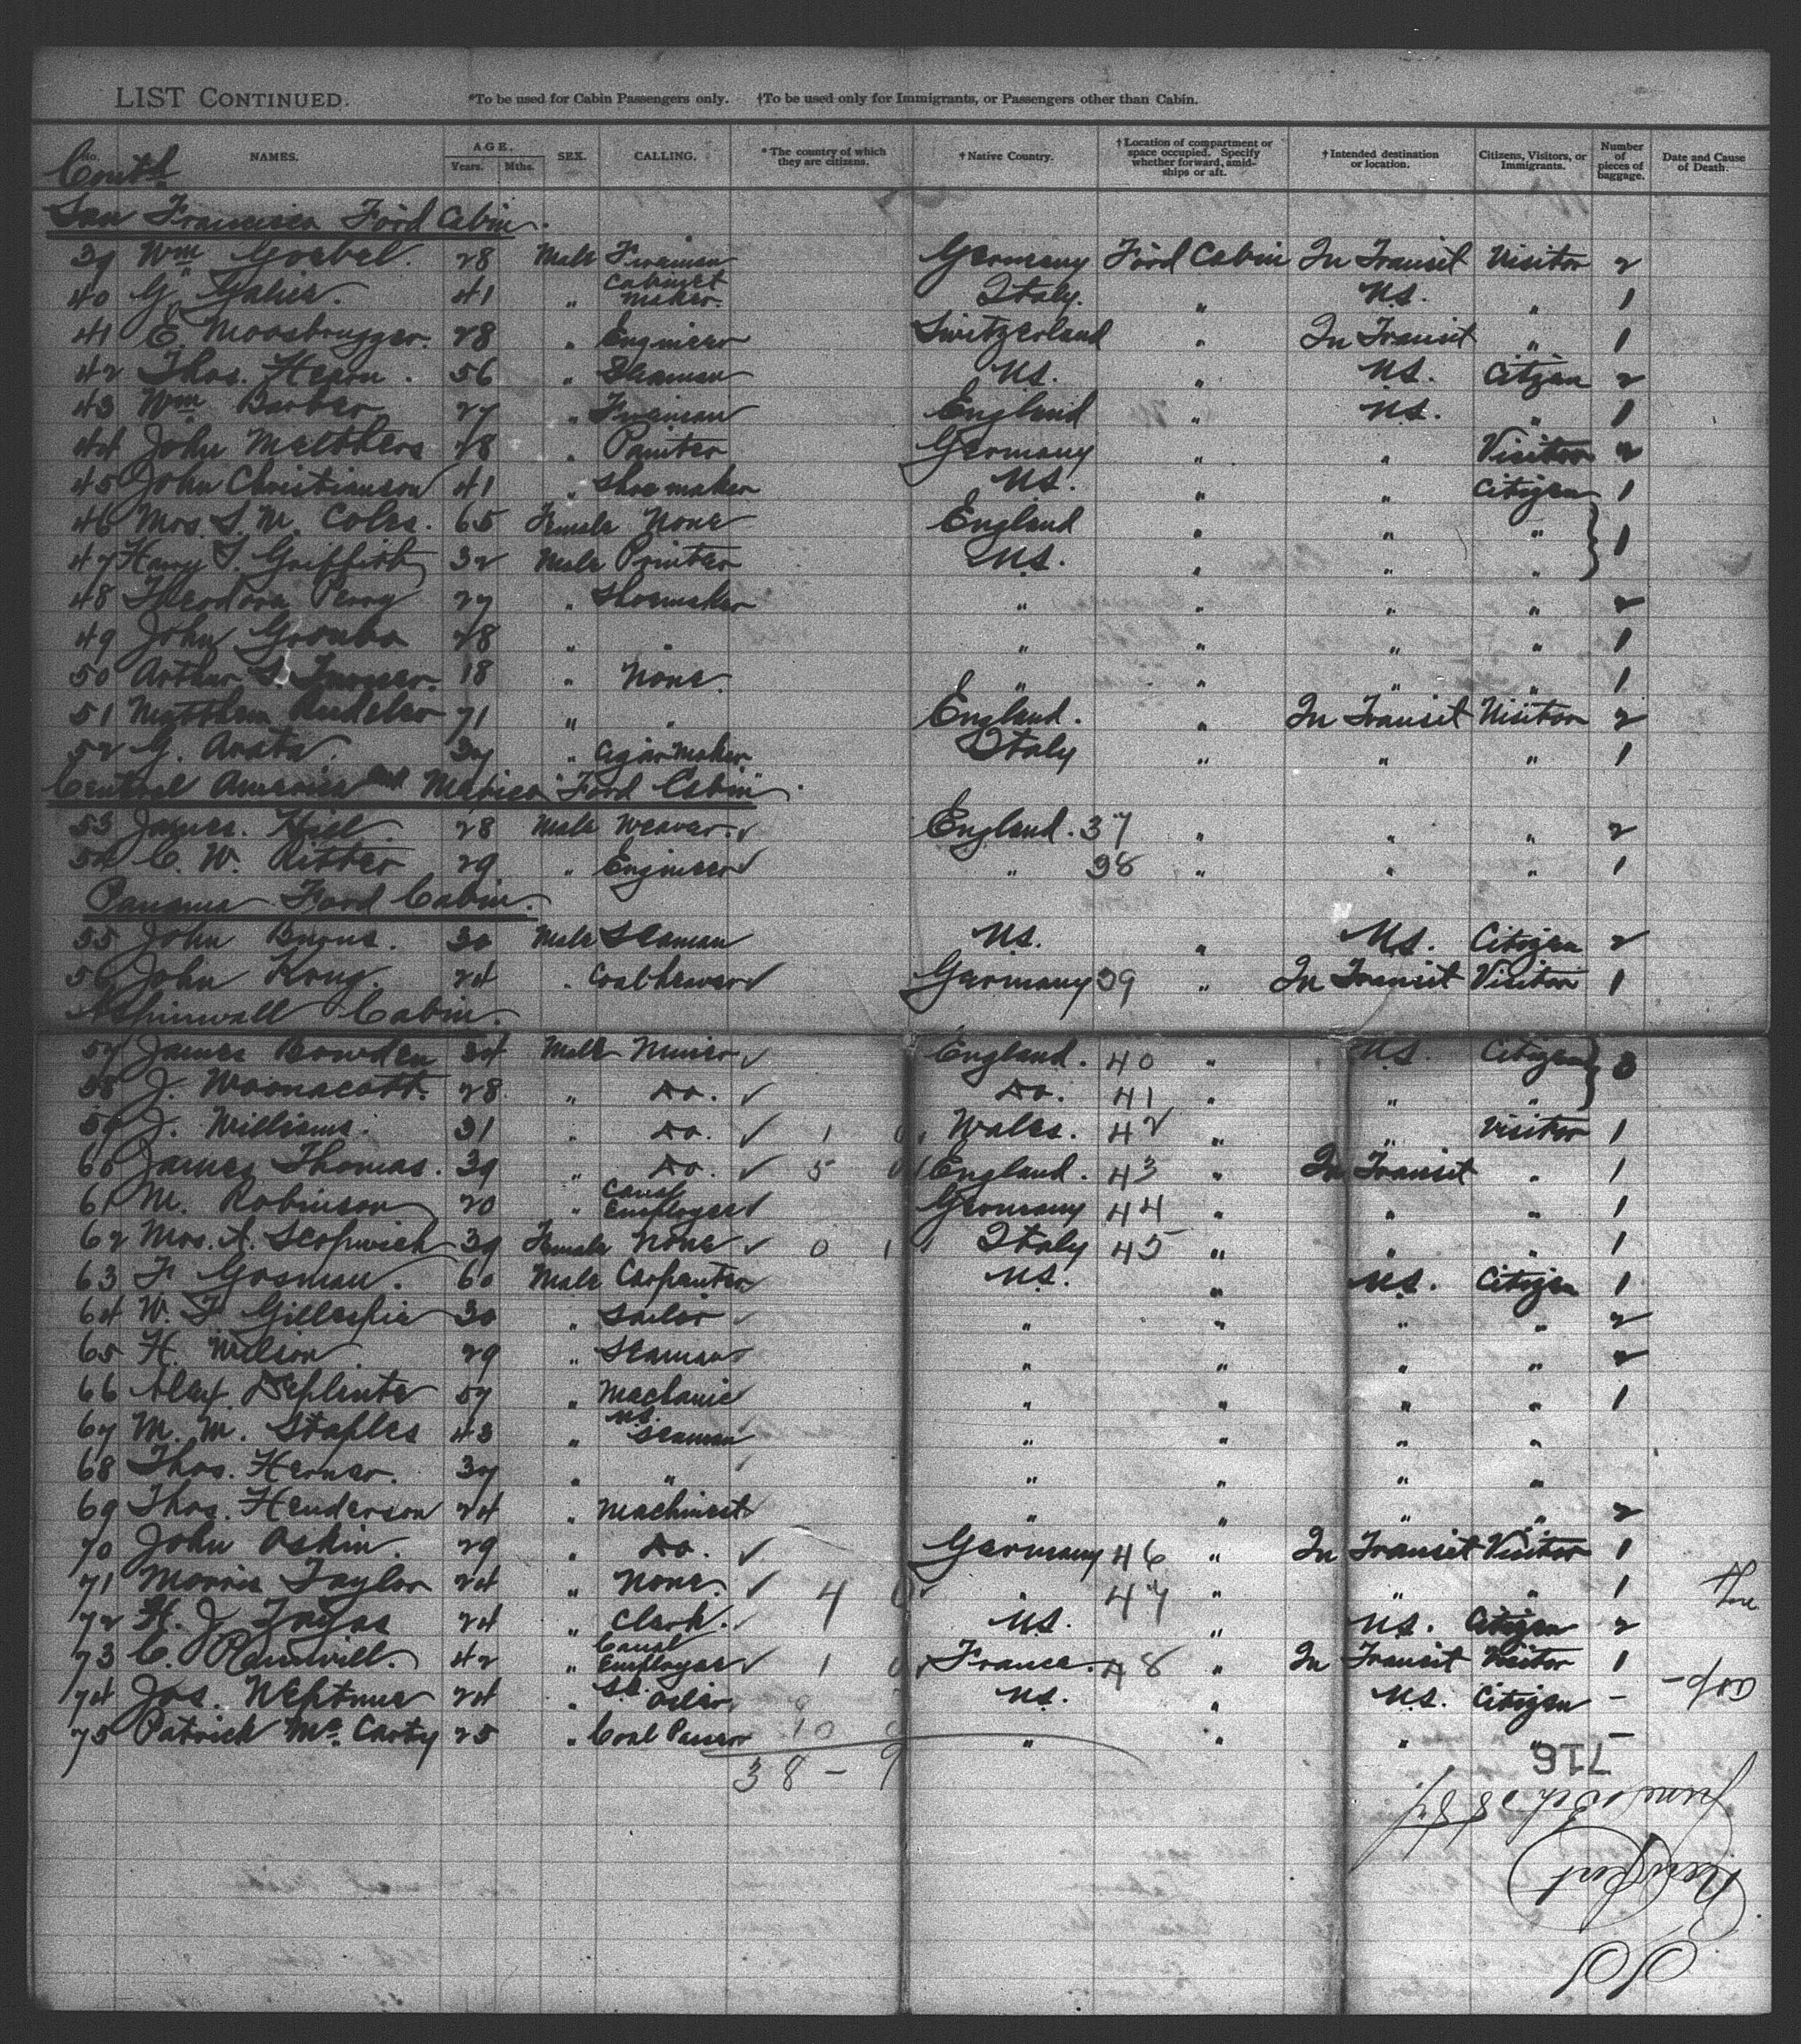 LIST CONTINUED. *To be used for Cabin Passengers only. †To be used only for Immigrants, or Passengers other than Cabin.
No. NAMES. AGE. Years. Mths. SEX. CALLING. *The country of which they are citizens. †Native Country. †Location of compartment or space occupied. Specify whether forward, amidships or aft. †Intended destination or location. Citizens, Visitors, or Immigrants. Number of pieces of baggage. Date and Cause of Death.
Contd
San Francisco Ford Cabin.
39 Wm Goebel. 28 Male Fireman Germany Ford Cabin In Transit Visitor 2
40 G. 41 " Cabinet Maker. Italy. " U.S. " 1
41 E. Moosbrugger. 28 " Engineer Switzerland " In Transit " 1
42 Thos. Hearn. 56 " Seaman U.S. " U.S. Citizen 2
43 Wm Barber 27 " Fireman England " U.S. " 1
44 John 48 " Painter Germany " " Visitor 2
45 John Christianson 41 " Shoemaker U.S. " " Citizen 1
46 Mrs. S. M. Coles. 65 Female None England " " " } 1
47 Harry S. Griffith 32 Male Printer U.S. " " "
48 Theodore Perry 27 " Shoemaker " " " " 2
49 John 28 " " " " " " 1
50 Arthur S. 18 " None. " " " " 1
51 Matthew 71 " " England. " In Transit Visitor 2
52 G. Arata. 37 " Cigar Maker Italy " " " 1
Central America and Mexico "Ford Cabin".
53 James. Hill. 28 Male Weaver. ✓ England. 37 " " " 2
54 C. W. Ritter 29 " Engineer ✓ " 38 " " " 1
Panama Ford Cabin.
55 John Burns. 30 Male Seaman U.S. " U.S. Citizen 2
56 John Krug. 24 " Coal heaver ✓ Germany 39 " In Transit Visitor 1
Aspinwall Cabin.
57 James Bowden 34 Male Miner ✓ England. 40 " U.S. Citizen } 3
58 J. Woonacott. 28. " Do. ✓ Do. 41 " " "
59 J. Williams. 31 " Do. ✓ 1 0 Wales. 42 " " Visitor 1
60 James Thomas. 39 " Do. ✓ 5 0 England. 43 " In Transit " 1
61 M. Robinson 20 " Canal Employee ✓ Germany 44 " " " 1
62 Mrs. A. 39 Female None ✓ 0 1 Italy 45 " " " 1
63 F. Gosman. 60 Male Carpenter U.S. " U.S. Citizen 1
64 W. F. Gillespie 30 " Sailor " " " " 2
65 H. Wilson 29 " Seaman " " " " 2
66 Alex. 57 " Mechanic " " " " 1
67 M. M. Staples 43 " U.S. Seaman " " " "
68 Thos. 37 " " " " " "
69 Thos. Henderson 24 " Machinist " " " " 2
70 John Askin. 29 " Do. ✓ Germany 46 " In Transit Visitor 1
71 Morris Taylor 24 " None. ✓ 4 0 " 47 " " " 1
72 H. J. 24 " Clerk. U.S. " U.S. Citizen 2
73 C. 42 " Canal Employee ✓ 1 0 France. 48 " In Transit Visitor 1
74 Jos. Neptune 24 " S.S. Oiler U.S. " U.S. Citizen –
75 Patrick McCarty 25 " Coal Passer 10 " " " " –
38 – 9
716
June 13th 1887